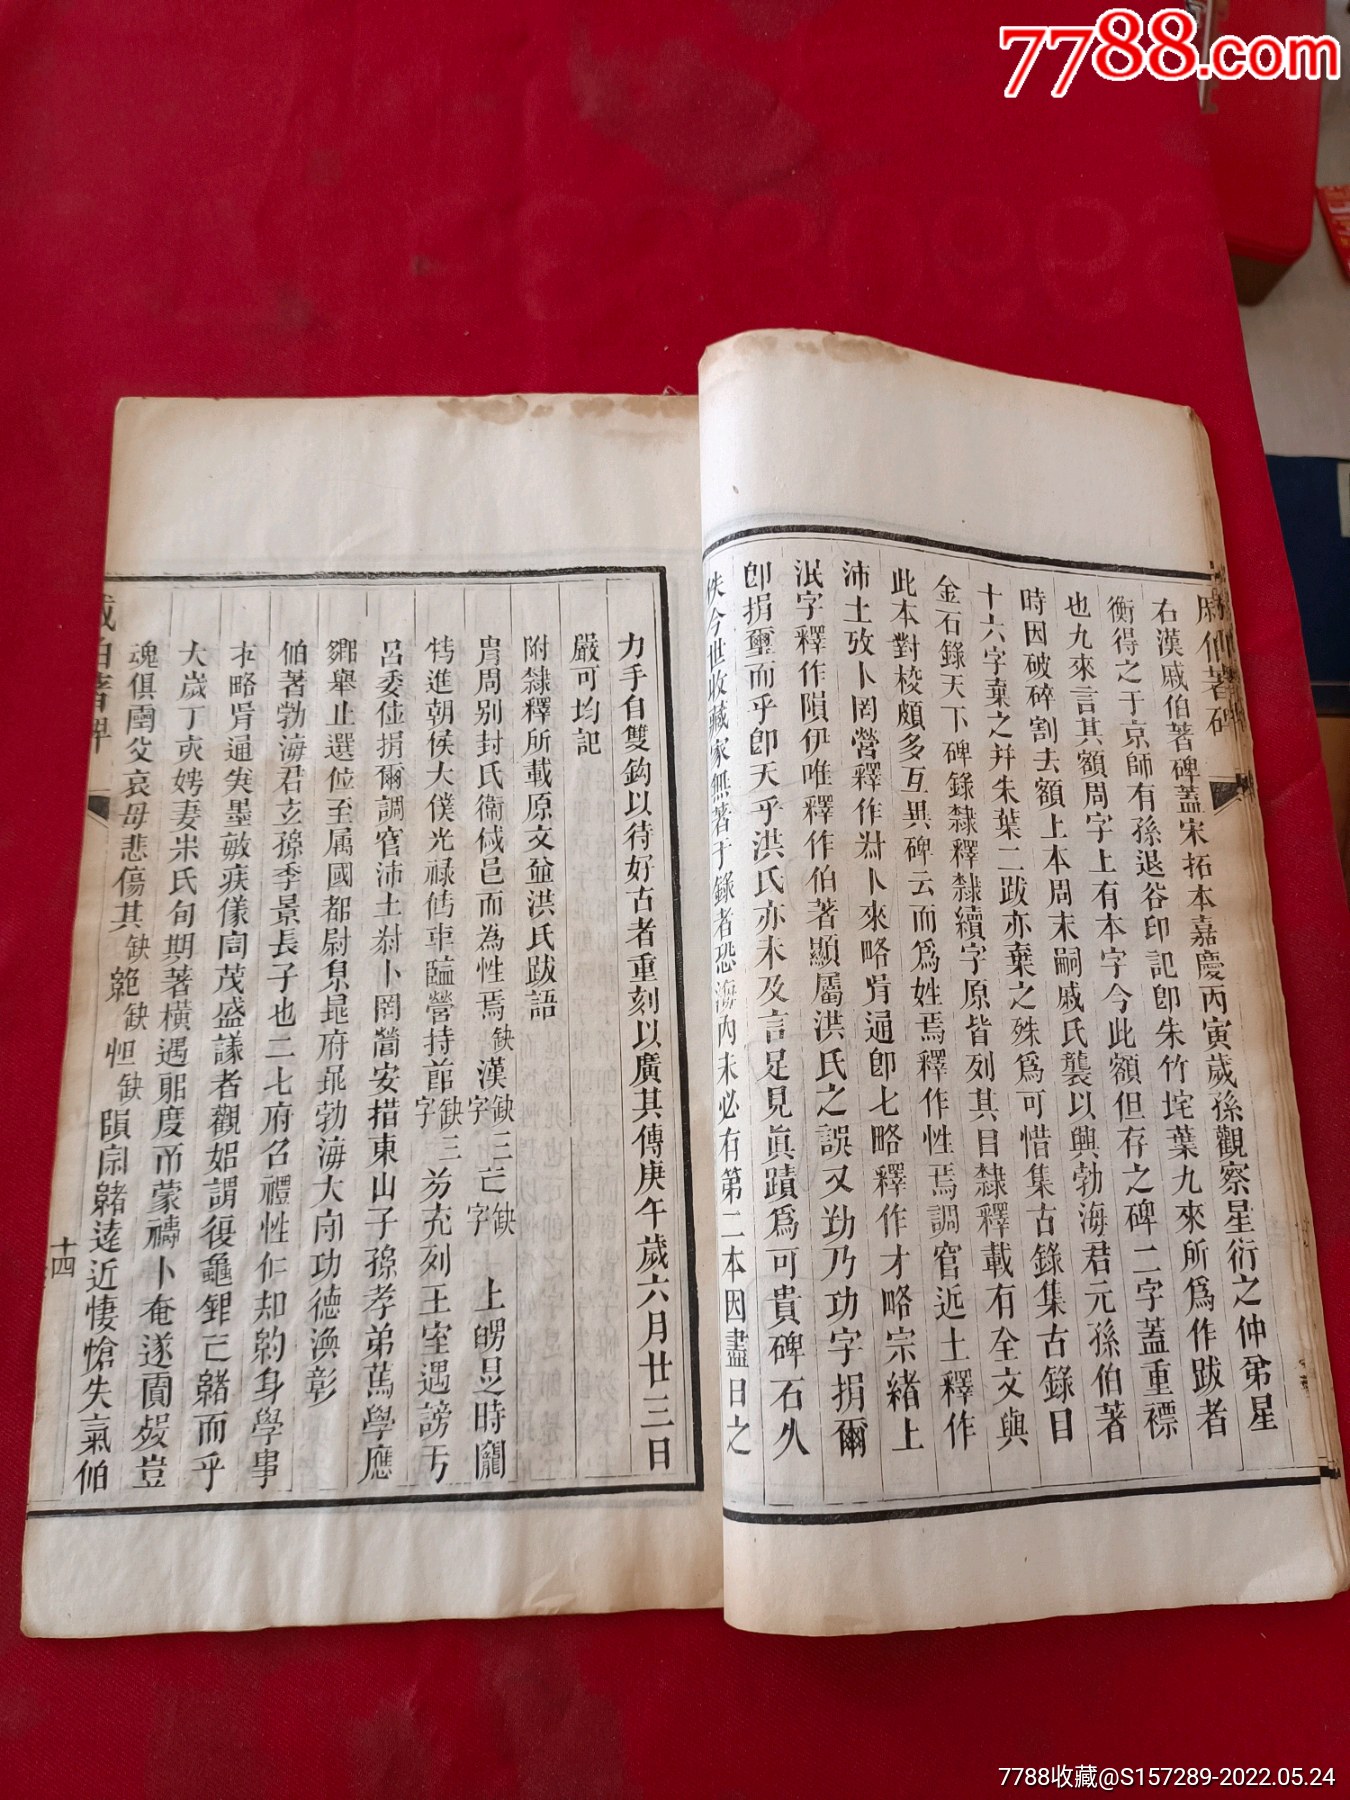 7788.com
右漢戚伯著碑蓋宋拓本嘉慶丙寅歲孫觀察星衍之仲弟星
衡得之于京師有孫退谷印記卽朱竹垞葉九來所爲作跋者
也九來言其額周字上有本字今此額但存之碑二字蓋重褾
時因破碎割去額上本周末嗣戚氏襲以興勃海君元孫伯著
十六字棄之幷朱葉二跋亦棄之殊爲可惜集古錄集古錄目
金石錄天下碑錄隸釋隸續字原皆列其目隸釋載有全文與
此本對校頗多互異碑云而爲姓焉釋作性焉調官近土釋作
沛土攷卜罔營釋作尌卜來略肎通卽七略釋作才略宗緒上
泯字釋作隕伊唯釋作伯著顯屬洪氏之誤又勤乃功字捐爾
卽捐璽而乎卽天乎洪氏亦未及言足見眞蹟爲可貴碑石久
佚今世收藏家無著于錄者恐海內未必有第二本因盡日之
力手自雙鈎以待好古者重刻以廣其傳庚午歲六月廿三日
嚴可均記
附隸釋所載原文並洪氏跋語
胄周别封氏衞《邑而為性焉缺漢缺三字亡缺字 上時
進朝侯大僕光祿車臨營持節缺三字充列王室遇謗于
呂委位捐爾調官沛土尌卜罔營安措東山子孫孝弟萬學應
鄉舉止選位至属國都尉府勃海大守功德渙彰
伯著勃海君玄孫季景長子也二七府召禮性仁却約身學事
才略肎通墨敏疾儀同茂盛議者觀紹謂復龜銀之緒而乎
大歲丁亥娉妻朱氏旬期著橫遇度而蒙禱卜奄遂賈豈
魂俱父哀母悲傷其缺絕缺怛缺隕宗緒遠近悽愴失氣伯
戚伯著碑
十四
7788收藏@S157289-2022.05.24